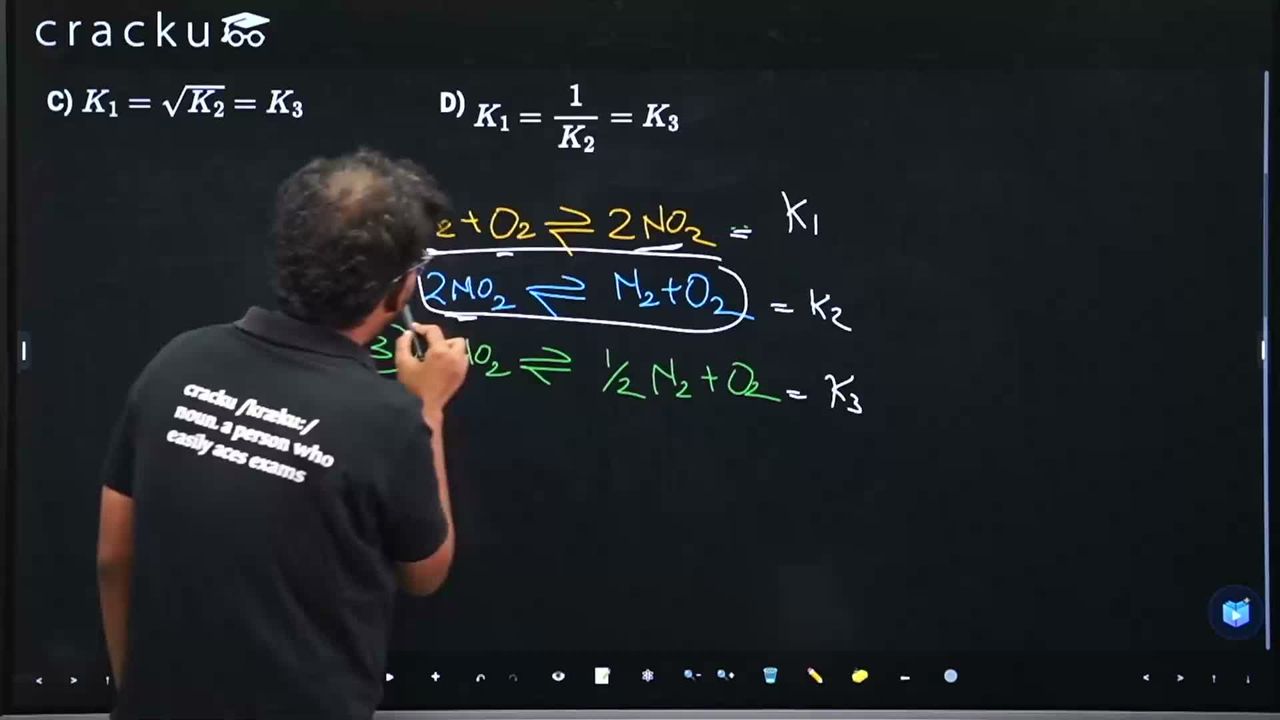 cracku
C) K₁ = √K₂ = K₃
D) K₁ = 1/K₂ = K₃
₂ + O₂ ⇌ 2NO₂ = K₁
2NO₂ ⇌ N₂ + O₂ = K₂
3 O₂ ⇌ 1/2 N₂ + O₂ = K₃
cracku /kræku:/
noun. a person who
easily aces exams